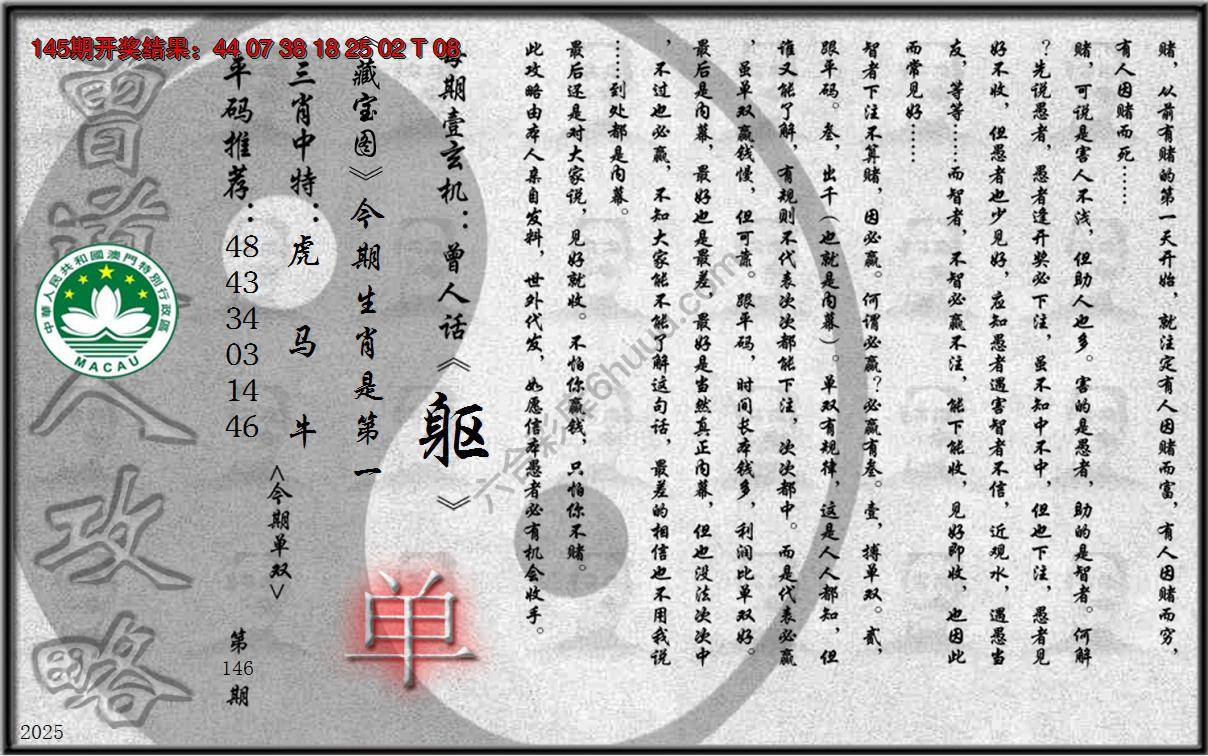 145期开奖结果：44 07 38 18 25 02 T 08
赌，从前有赌的第一天开始，就注定有人因赌而富，有人因赌而穷，
有人因赌而死……
赌，可说是害人不浅，但助人也多。害的是愚者，助的是智者。何解
？先说愚者，愚者逢开奖必下注，虽不知中不中，但也下注，愚者见
好不收，但愚者也少见好，应知愚者遇害智者不信，近观水，遇愚当
友，等等……而智者，不智必赢不注，能下能收，见好即收，也因此
而常见好……
智者下注不算赌，因必赢。何谓必赢？必赢有叁。壹，搏单双。贰，
跟平码。叁，出千（也就是内幕）。单双有规律，这是人人都知，但
谁又能了解，有规则不代表次次都能下注，次次都中。而是代表必赢
，虽单双赢钱慢，但可靠。跟平码，时间长本钱多，利润比单双好。
最后是内幕，最好也是最差，最好是当然真正内幕，但也没法次次中
，不过也必赢，不知大家能不能了解这句话，最差的相信也不用我说
……到处都是内幕。
最后还是对大家说，见好就收。不怕你赢钱，只怕你不赌。
此攻略由本人亲自发料，世外代发，如愿信本愚者必有机会收手。
每期壹玄机：曾人话《躯》
《藏宝图》今期生肖是第一
单
三肖中特：虎 马 牛
<今期单双>
平码推荐：
48
43
34
03
14
46
第
146
期
曾道人攻略
中華人民共和國澳門特別行政區
MACAU
六合彩库6huuu.com
2025